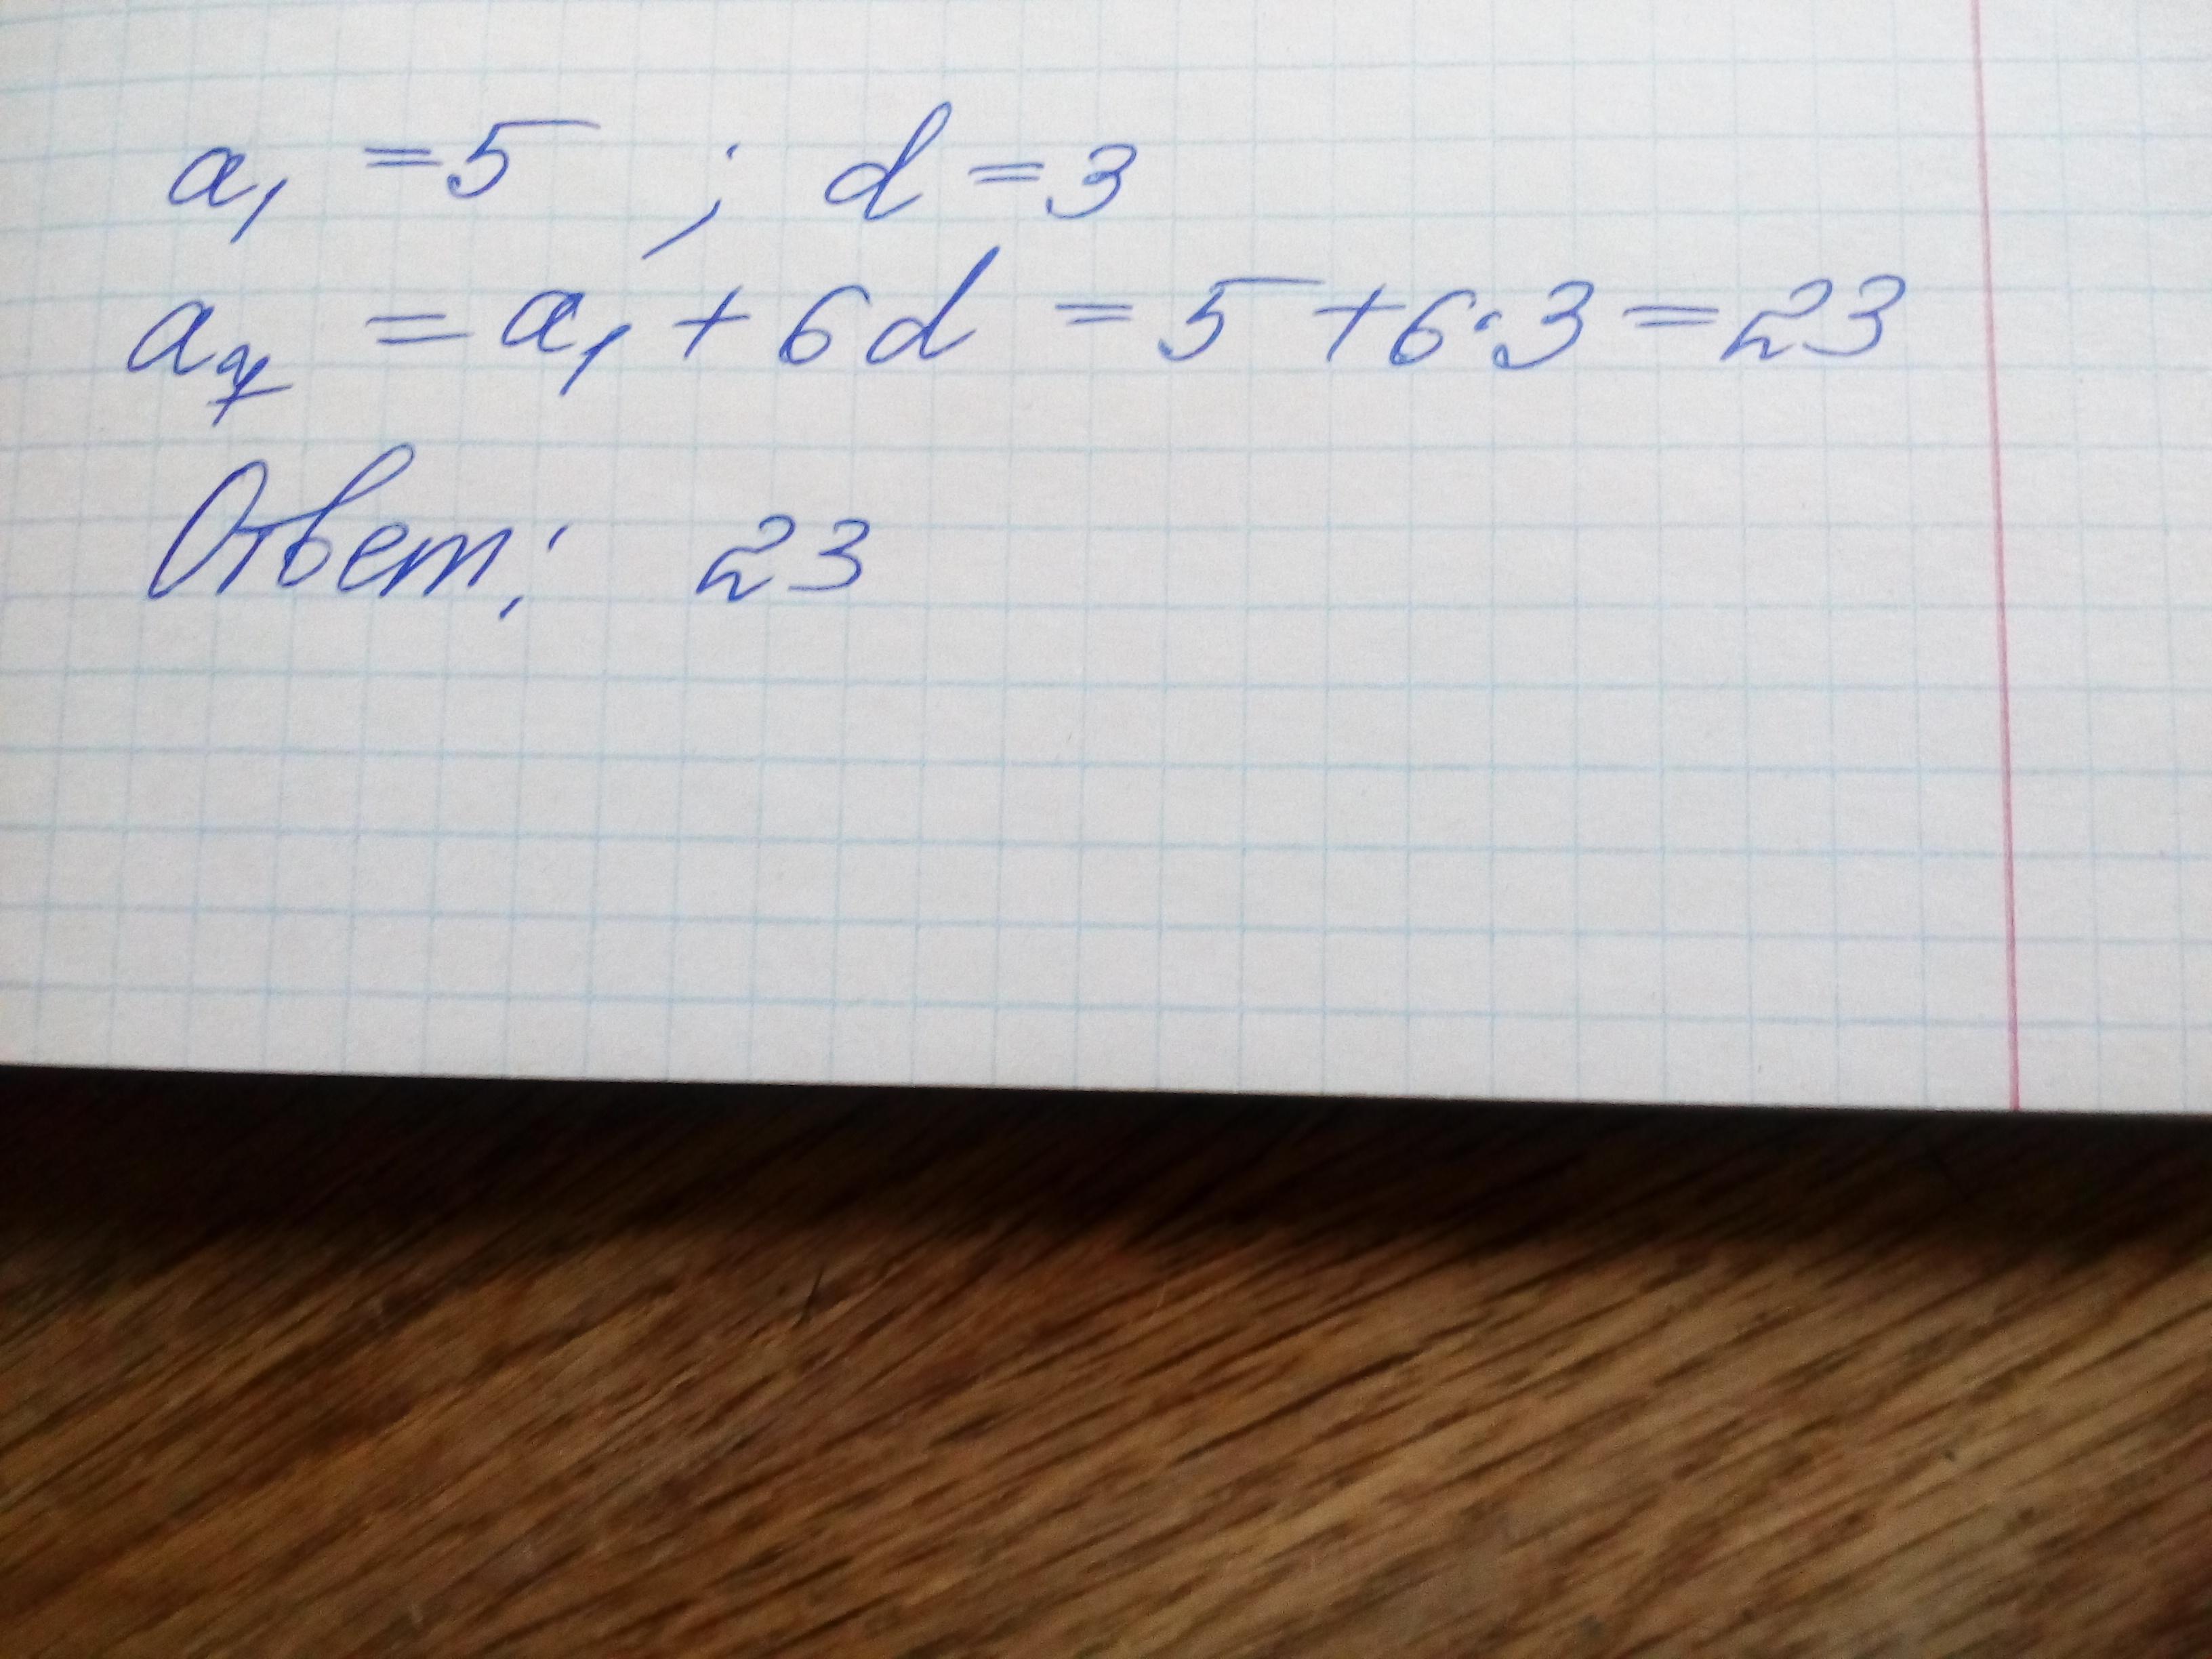 a₁ = 5 ; d = 3
a₇ = a₁ + 6d = 5 + 6·3 = 23
Ответ: 23